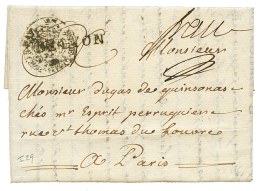 Monsieur
Monsieur dugas de quinsonas
chés mr Esprit perruquier
rue st thomas du Louvre
a Paris